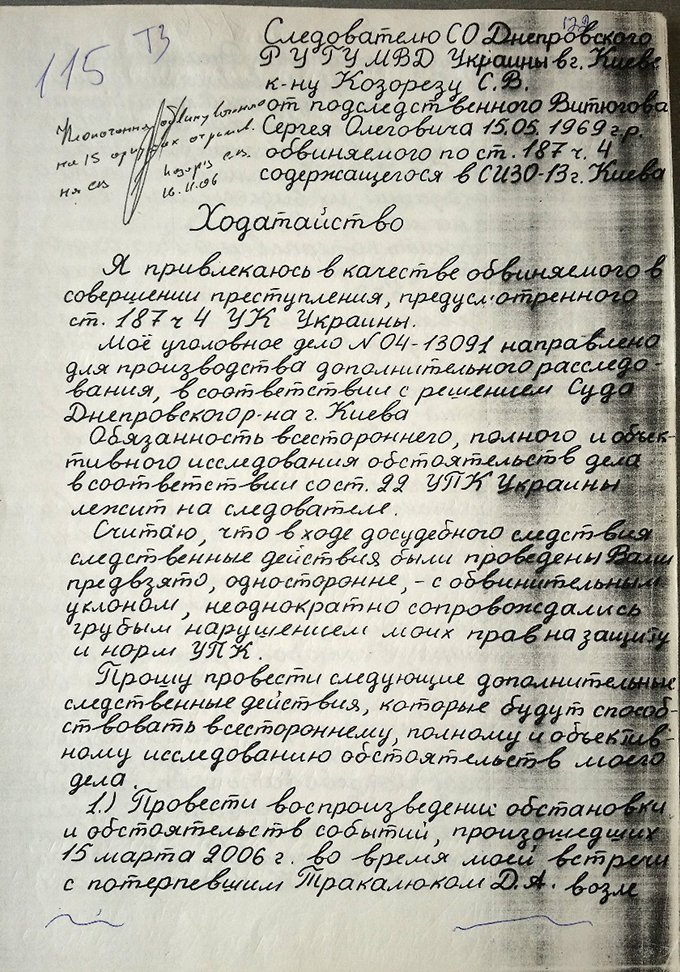 122
115 ТЗ
Следователю СО Днепровского
РУГУМВД Украины в г. Киеве
к-ну Козорезу С.В.
от подследственного Витюгова
Сергея Олеговича 15.05.1969 г.р.
обвиняемого по ст. 187 ч. 4
содержащегося в СИЗО-13 г. Киева
на 15
16.11.06
Ходатайство
Я привлекаюсь в качестве обвиняемого в
совершении преступления, предусмотренного
ст. 187 ч 4 УК Украины.
Моё уголовное дело N 04-13091 направлено
для производства дополнительного расследо-
вания, в соответствии с решением Суда
Днепровского р-на г. Киева
Обязанность всестороннего, полного и объек-
тивного исследования обстоятельств дела
в соответствии со ст. 22 УПК Украины
лежит на следователе.
Считаю, что в ходе досудебного следствия
следственные действия были проведены Вами
предвзято, односторонне, - с обвинительным
уклоном, неоднократно сопровождались
грубым нарушением моих прав на защиту
и норм УПК.
Прошу провести следующие дополнительные
следственные действия, которые будут способ-
ствовать всестороннему, полному и объектив-
ному исследованию обстоятельств моего
дела.
1.) Провести воспроизведение обстановки
и обстоятельств событий, произошедших
15 марта 2006 г. во время моей встречи
с потерпевшим Тракалюком Д.А. возле